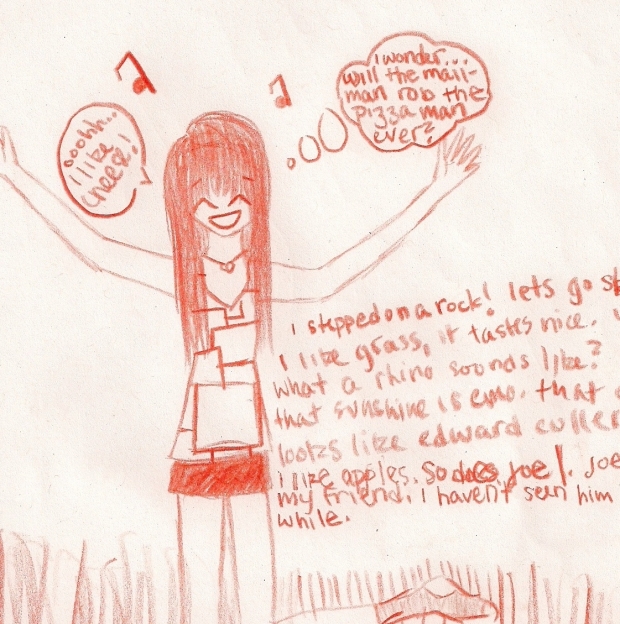 ooohh...
i like
cheese!
i wonder...
will the mail-
man rob the
pizza man
ever?
i stepped on a rock! lets go
i like grass, it tastes nice.
what a rhino soonds like?
that sunshine is emo. that
looks like edward cullen
i like apples. So does joe!. joe
my friend. i haven't seen him
while.